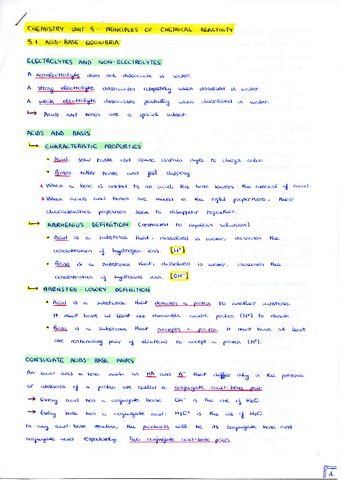 CHEMISTRY UNIT 5 - PRINCIPLES OF CHEMICAL REACTIVITY
5.1. ACID-BASE EQUILIBRIA
ELECTROLYTES AND NON-ELECTROLYTES
A nonelectrolyte does not dissociate in water.
A strong electrolyte dissociates completely when dissolved in water.
A weak electrolyte dissociates partially when dissolved in water.
→ Acids and bases are a special subset.
ACIDS AND BASIS
→ CHARACTERISTIC PROPERTIES
• Acid: sour taste and cause certain dyes to change color.
• Bases: bitter taste and feel slippery.
* When a base is added to an acid, the base lowers the amount of acid.
* When acids and bases are mixed in the right proportions, their
characteristic properties seem to disappear together.
→ ARRHENIUS DEFINITION (restricted to aqueous solutions)
• Acid is a substance that, dissolved in water, increases the
concentration of hydrogen ions. [H⁺]
• Base is a substance that, dissolved in water, increases the
concentration of hydroxide ions. [OH⁻]
→ BRØNSTED-LOWRY DEFINITION
• Acid is a substance that donates a proton to another substance.
It must have at least one removable acidic proton (H⁺) to donate.
• Base is a substance that accepts a proton. It must have at least
one nonbonding pair of electrons to accept a proton (H⁺).
CONJUGATE ACIDS-BASE PAIRS
An acid and a base such as HA and A⁻ that differ only in the presence
or absence of a proton are called a conjugate acid-base pair.
→ Every acid has a conjugate base: OH⁻ is the of H₂O.
→ Every base has a conjugate acid: H₃O⁺ is the of H₂O.
In any acid-base reaction, the products will be its conjugate base and
conjugate acid respectively. Two conjugate acid-base pairs.
1.